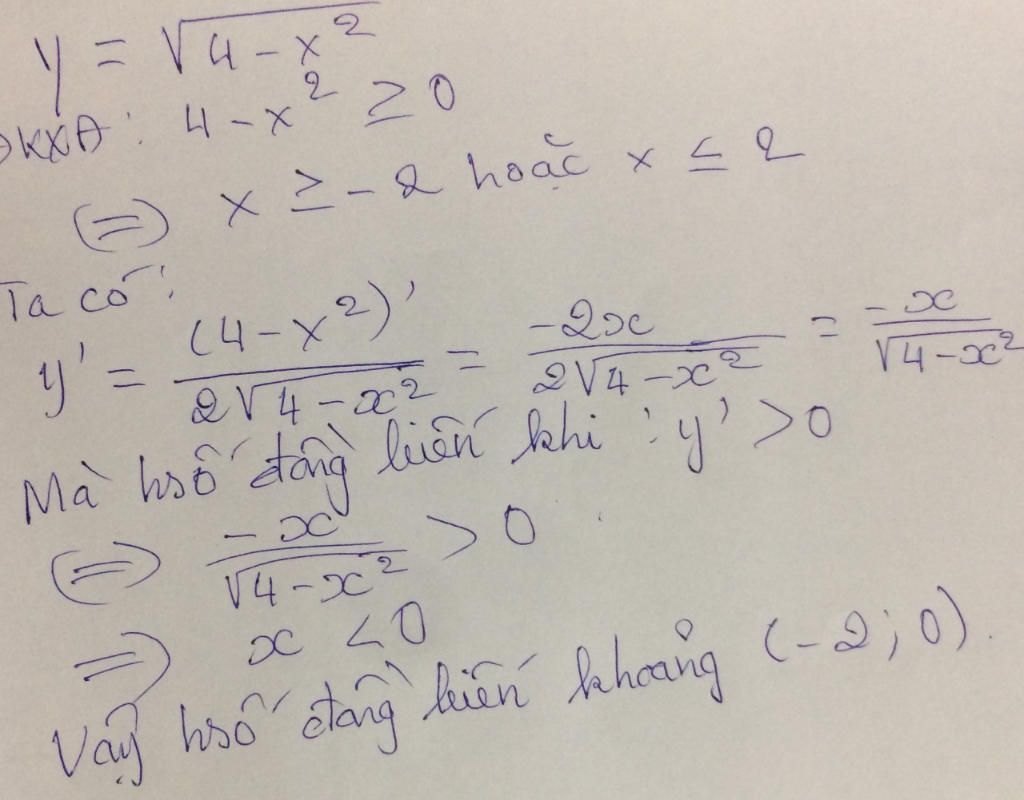 y = √(4 - x²)
ĐKXĐ: 4 - x² ≥ 0
(=) x ≥ -2 hoặc x ≤ 2
Ta có:
y' = (4 - x²)' / 2√(4 - x²) = -2x / 2√(4 - x²) = -x / √(4 - x²)
Mà hsố đồng biến khi : y' > 0
(=) -x / √(4 - x²) > 0
=) x < 0
Vậy hsố đồng biến khoảng (-2; 0).